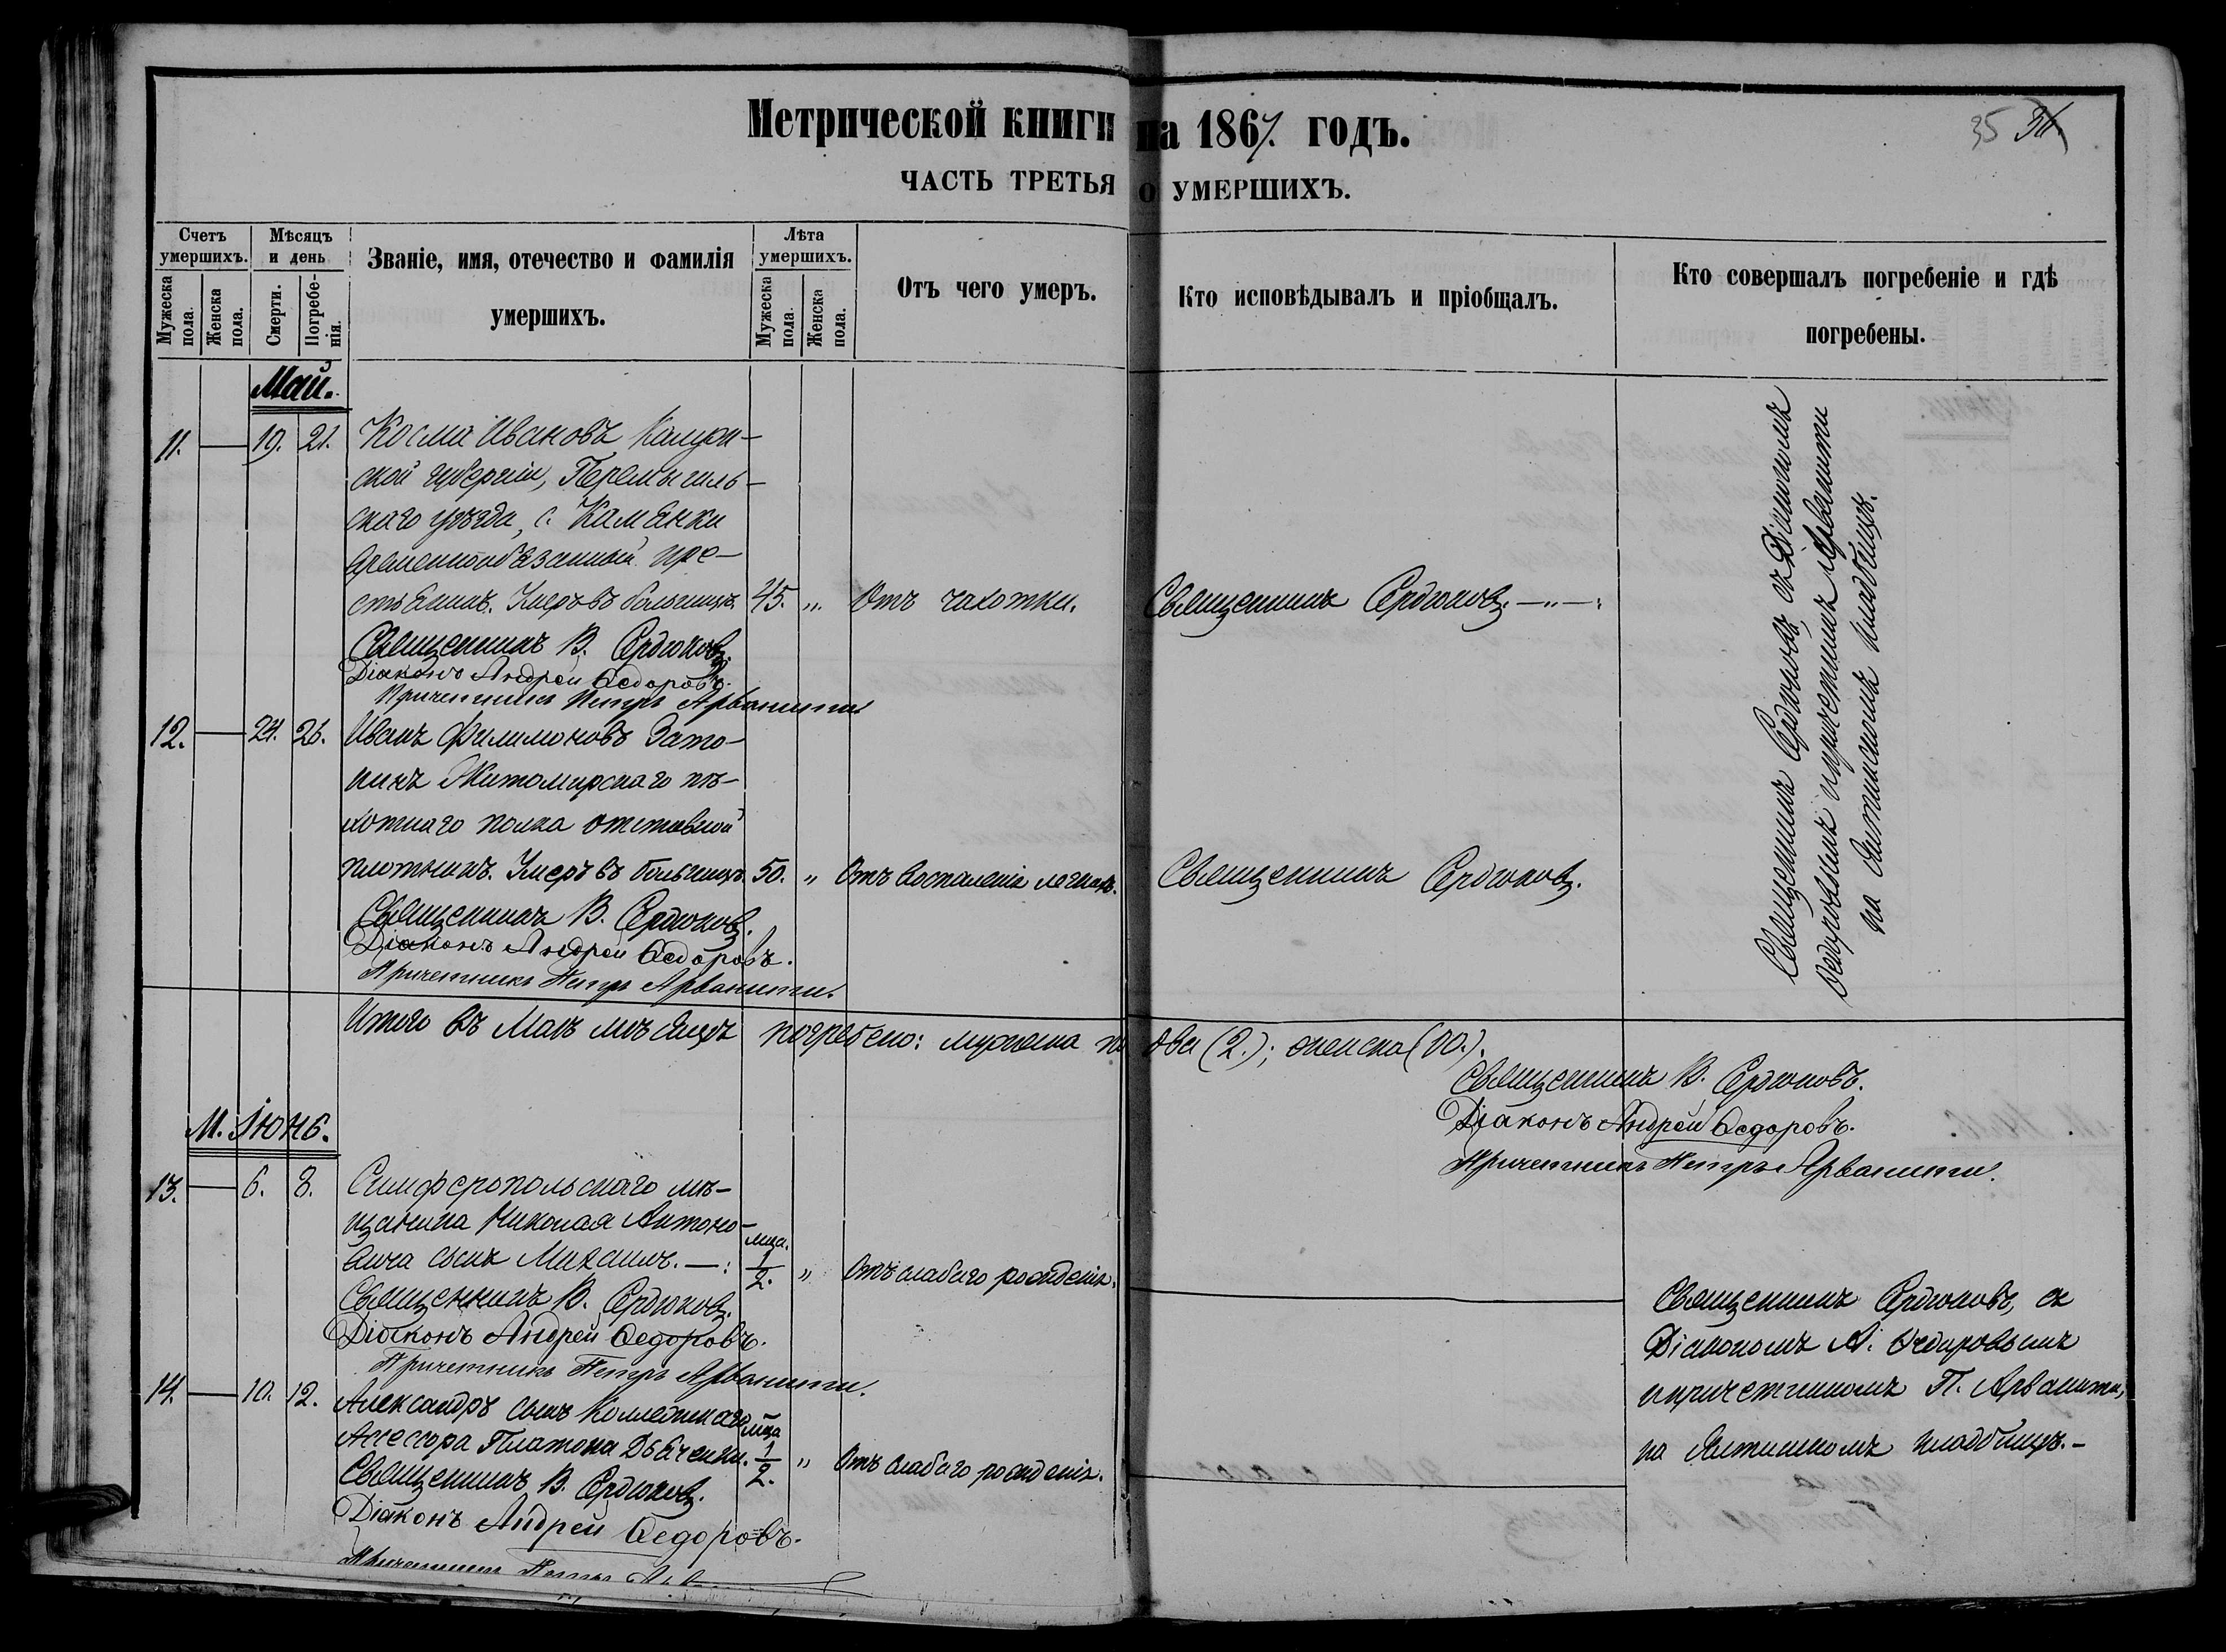 Метрической книги на 1867. годъ.
35 36
ЧАСТЬ ТРЕТЬЯ О УМЕРШИХЪ.
Счетъ умершихъ.
Мужеска пола.
Женска пола.
Мѣсяцъ и день
Смерти.
Погребенія.
Званіе, имя, отечество и фамилія умершихъ.
Лѣта умершихъ.
Мужеска пола.
Женска пола.
Отъ чего умеръ.
Кто исповѣдывалъ и пріобщалъ.
Кто совершалъ погребеніе и гдѣ погребены.
Май.
11. — 19. 21. Косма Ивановъ Калуж-
ской губерніи, Перемышль-
скаго уѣзда, с. Каменки
временнообязанный кре-
стьянинъ. Умеръ въ больницѣ. 45. „ Отъ чахотки. Священникъ Сердюковъ. —„—:
Священникъ В. Сердюковъ.
Діаконъ Андрей Ѳедоровъ.
Причетникъ Петръ Арванити
12. — 24. 26. Иванъ Филимоновъ Зато-
никъ Житомирскаго пѣ-
хотнаго полка отставной
плотникъ. Умеръ въ больницѣ. 50. „ Отъ воспаленія легкихъ. Священникъ Сердюковъ.
Священникъ В. Сердюковъ.
Діаконъ Андрей Ѳедоровъ.
Причетникъ Петръ Арванити.
Священникъ Сердюковъ, съ Діакономъ
Ѳедоровымъ и причетникомъ Арванити
на Ялтинскомъ кладбищѣ.
Итого въ Маѣ мѣсяцѣ погребено: мужеска п. два (2.); женска (00.).
Священникъ В. Сердюковъ.
Діаконъ Андрей Ѳедоровъ.
Причетникъ Петръ Арванити.
М. Іюнь.
13. — 6. 8. Симферопольскаго мѣ-
щанина Николая Антоно-
вича сынъ Михаилъ. —: мца. 1/2. „ Отъ слабаго рожденія.
Священникъ В. Сердюковъ.
Діаконъ Андрей Ѳедоровъ.
Причетникъ Петръ Арванити.
14. — 10. 12. Александръ сынъ Коллежскаго
Ассесора Платона Дьяченки. мца 1/2. „ Отъ слабаго рожденія.
Священникъ В. Сердюковъ.
Діаконъ Андрей Ѳедоровъ.
Причетникъ Петръ
Священникъ Сердюковъ, съ
Діакономъ А. Ѳедоровымъ
и причетникомъ П. Арванити,
на Ялтинскомъ кладбищѣ.—